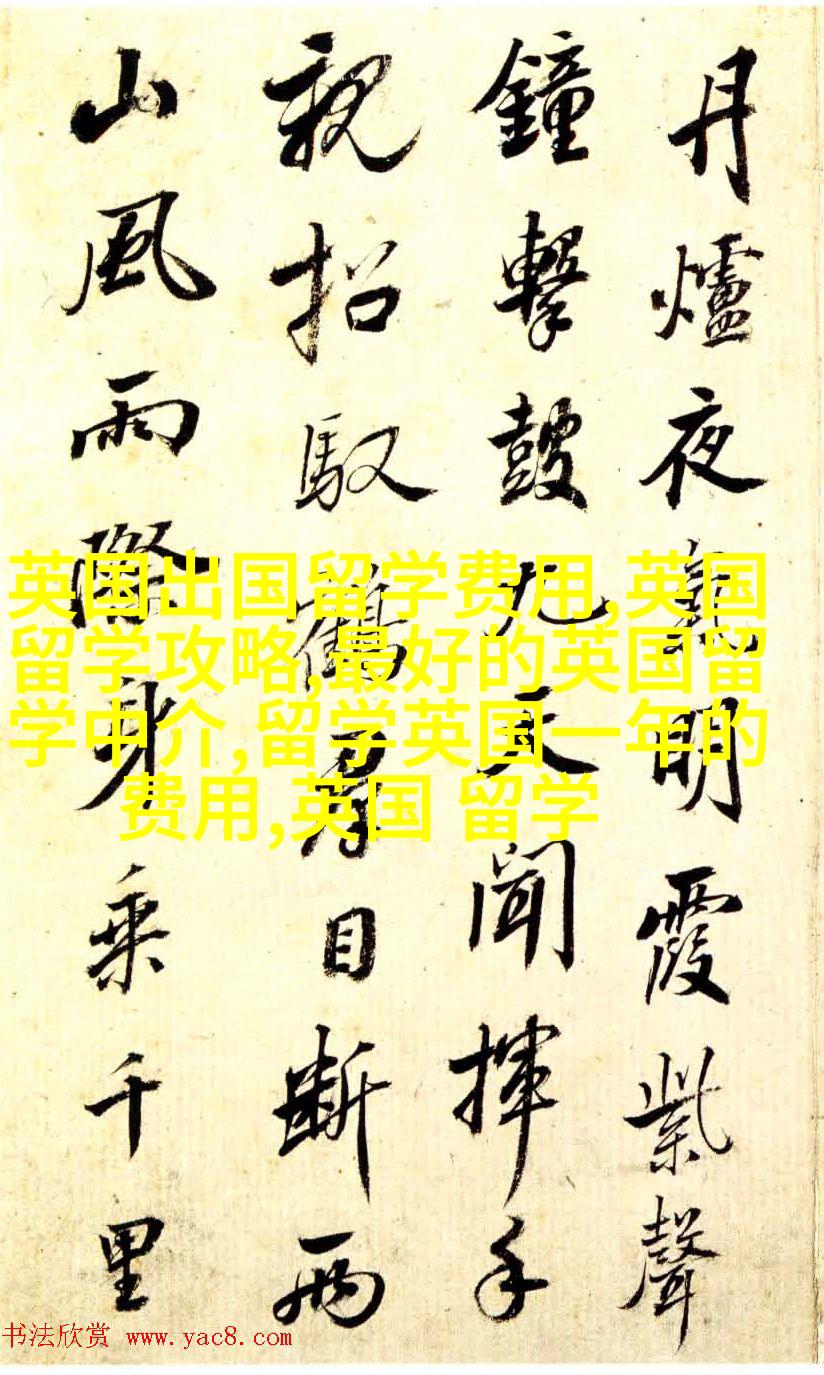 丹爐夜氣明霞紫聲
鐘擊鼓九天聞揮手
親招馭鶴羣目斷兩
山風雨際身乘千里
英国出国留学费用,英国
留学攻略,最好的英国留
学中介,留学英国一年的
费用,英国 留学
书法欣赏 www.yac8.com